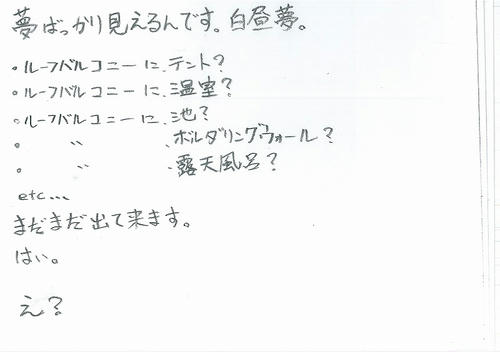 夢ばっかり見えるんです。白昼夢。
・ルーフバルコニーに、テント？
・ルーフバルコニーに、温室？
・ルーフバルコニーに、池？
・　〃　、ボルダリングウォール？
・　〃　、露天風呂？
etc...
まだまだ出て来ます。
はい。
え？